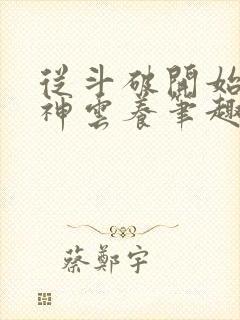 從斗破開始
神雲養筆趣
蔡鄭宇